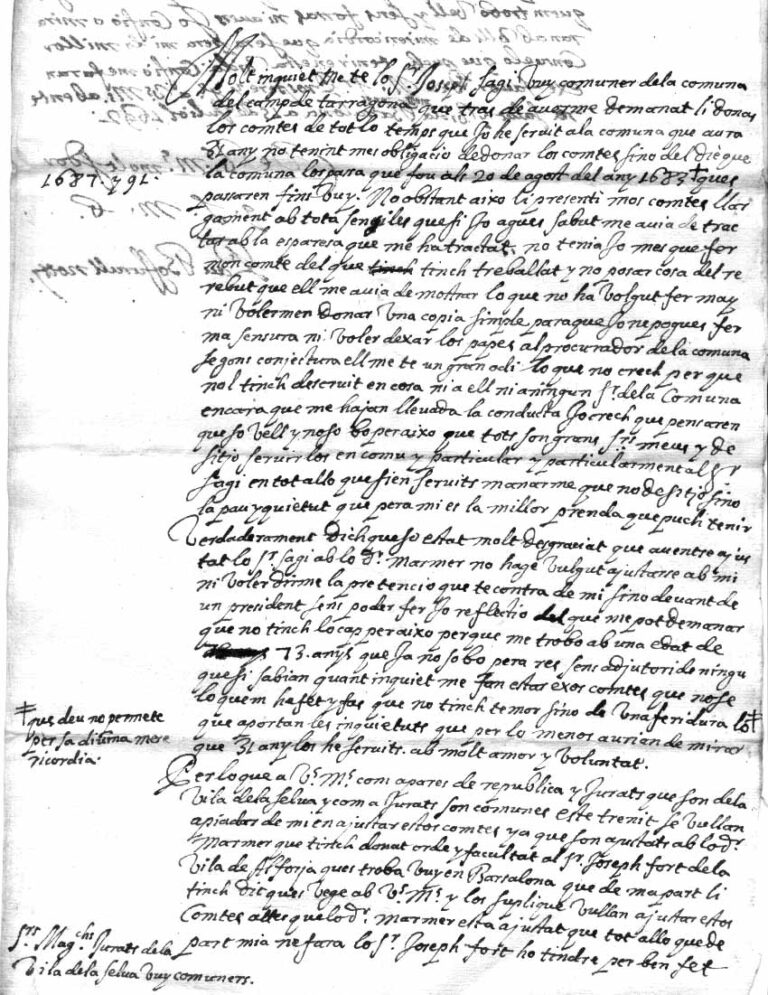 Molt inquiet me te lo Sr. Joseph Sagi vuy comuner de la comuna
del camp de tarragona que tras de averme demanat li donas
los comtes de tot lo temps que Jo he servit a la comuna que aura
31 any no tenint mes obligacio de donar los comtes sino del die que
la comuna los passa que fou als 20 de agost del any 1683 ‡ ques
1687. y 91.
passaren fins vuy. No obstant aixo li presenti mos comtes llar
gament ab tota senciles que si Jo agues sabut me avia de trac
tar ab la esparesa que me ha tractat, no tenia Jo mes que fer
mon comte del que tinch tinch treballat y no posar cosa del re
rebut que ell me avia de mostrar lo que no ha volgut fer may
ni volermen donar una copia simple para que Jo ne pogues fer
ma sensura ni voler dexar los papes al procurador de la comuna
segons conjectura ell me te un gran odi lo que no crech per que
nol tinch descruit en cosa ni a ell ni a ningun Sr. de la Comuna
encara que me hajan llevada la conducta Jo crech que pensaren
que so vell y no so bo per aixo que tots son grans Srs. meus y de
sitjo servirlos en comu y particular y particularment al Sr
Sagi en tot allo que sien servits manarme que no desitjo sino
la pau y quietut que pera mi es la millor prenda que puch tenir
Verdaderament dich que so estat molt desgraciat que aventse ajus
tat lo Sr. Sagi ab lo Dr. Marmer no hage vulgut ajustarse ab mi
ni voler dirme la pretencio que te contra de mi sino devant de
un president sens poder fer Jo reflectio del que me pot demanar
que no tinch lo cap per aixo perque me trobo ab una edat de
73. anys que Ja no so bo pera res sens adjutori de ningu
que si sabian quant inquiet me fan estar exos comtes que no se
lo quem ha fet y fas que no tinch temor sino de una feridura lo ‡
‡ que deu no permete
per sa divina mese
ricordia.
que aportan les inquietuts que per lo menos aurien de mirar
que 31 any los he servits. ab molt amor y voluntat.
Per lo que a Vs. Ms. com a pares de republica y Jurats que son de la
Vila de la selva y com a Jurats son comunes este trenit se vullan
apiadar de mi en ajustar estos comtes ya que son ajustats ab lo Dr.
Marmer que tinch donat orde y facultat al Sr. Joseph fort de la
Vila de Alforja ques troba vuy en Barsalona que de ma part li
tinch dic ques vege ab Vs. Ms. y los suplique vullan ajustar estos
Comtes que lo Dr. Marmer esta ajustat que tot allo que de
part mia ne fara lo Sr. Joseph fort ho tindre per ben fet
Srs. Magchs. Jurats de la
Vila de la selva vuy comuners.